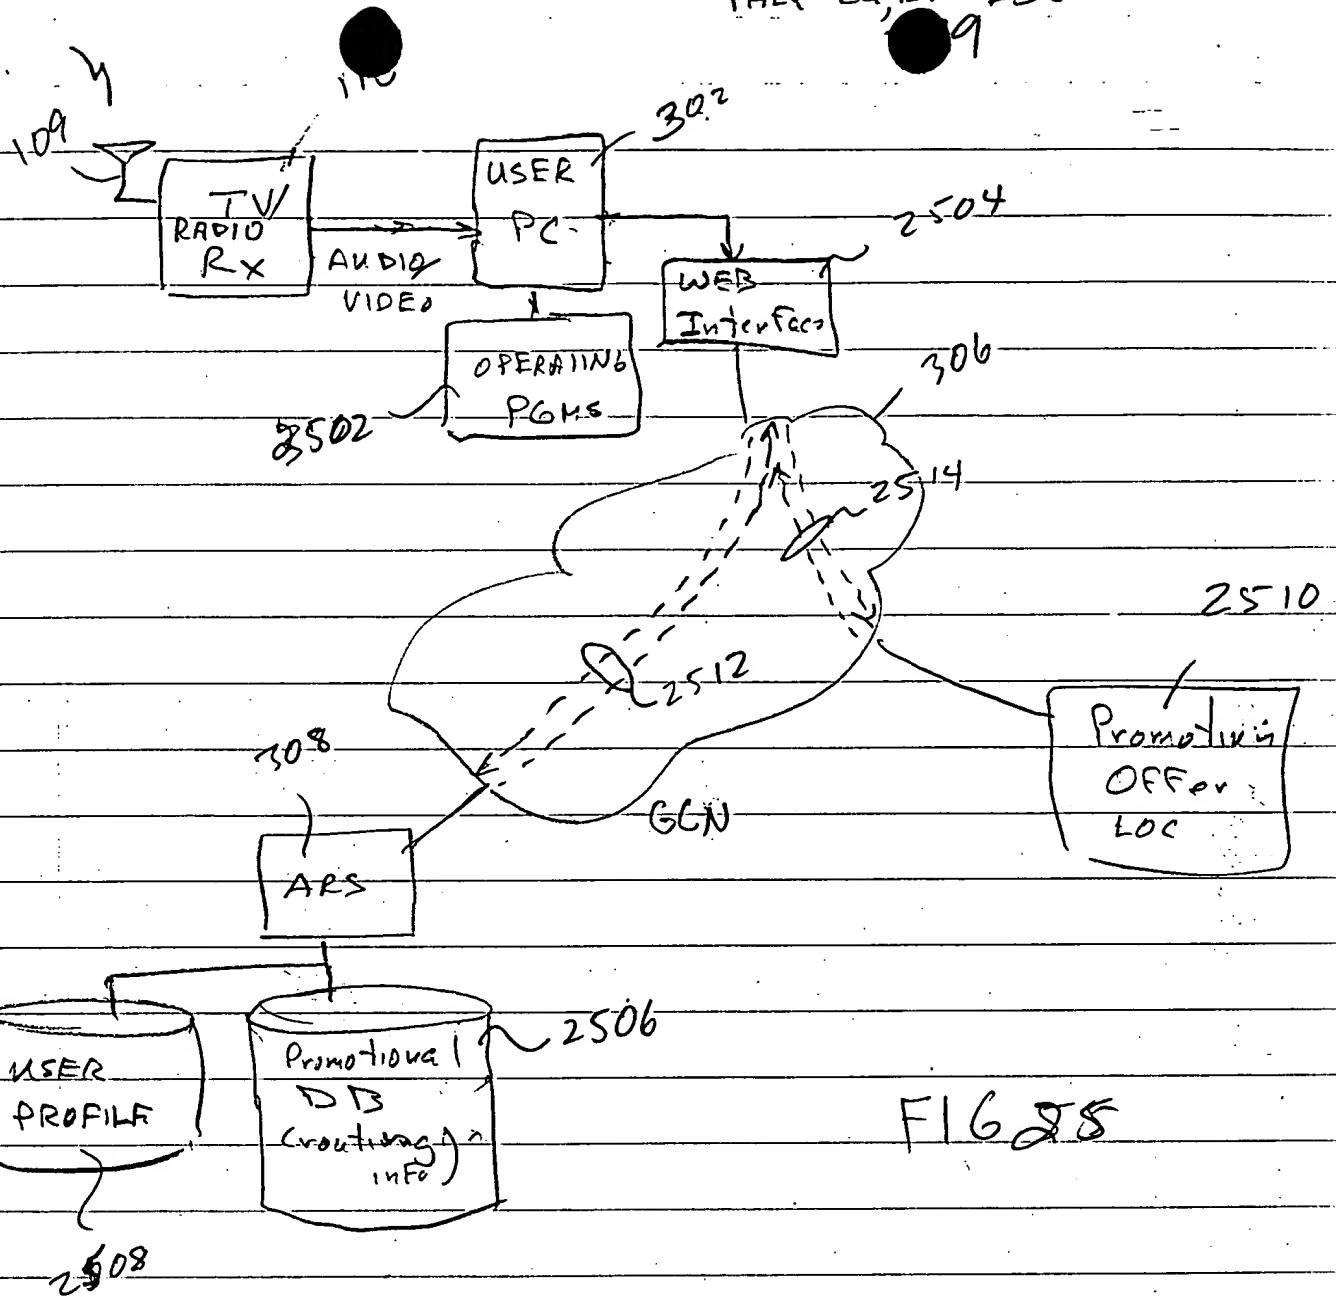 9
109
110
302
TV/
RADIO
Rx
AUDIO/
VIDEO
USER
PC
2504
WEB
Interface
OPERATING
PGMS
2502
306
2514
2512
2510
Promotion
OFFer
LOC
308
GCN
ARS
USER
PROFILE
2508
Promotional
DB
(routing
info)
2506
FIG 25